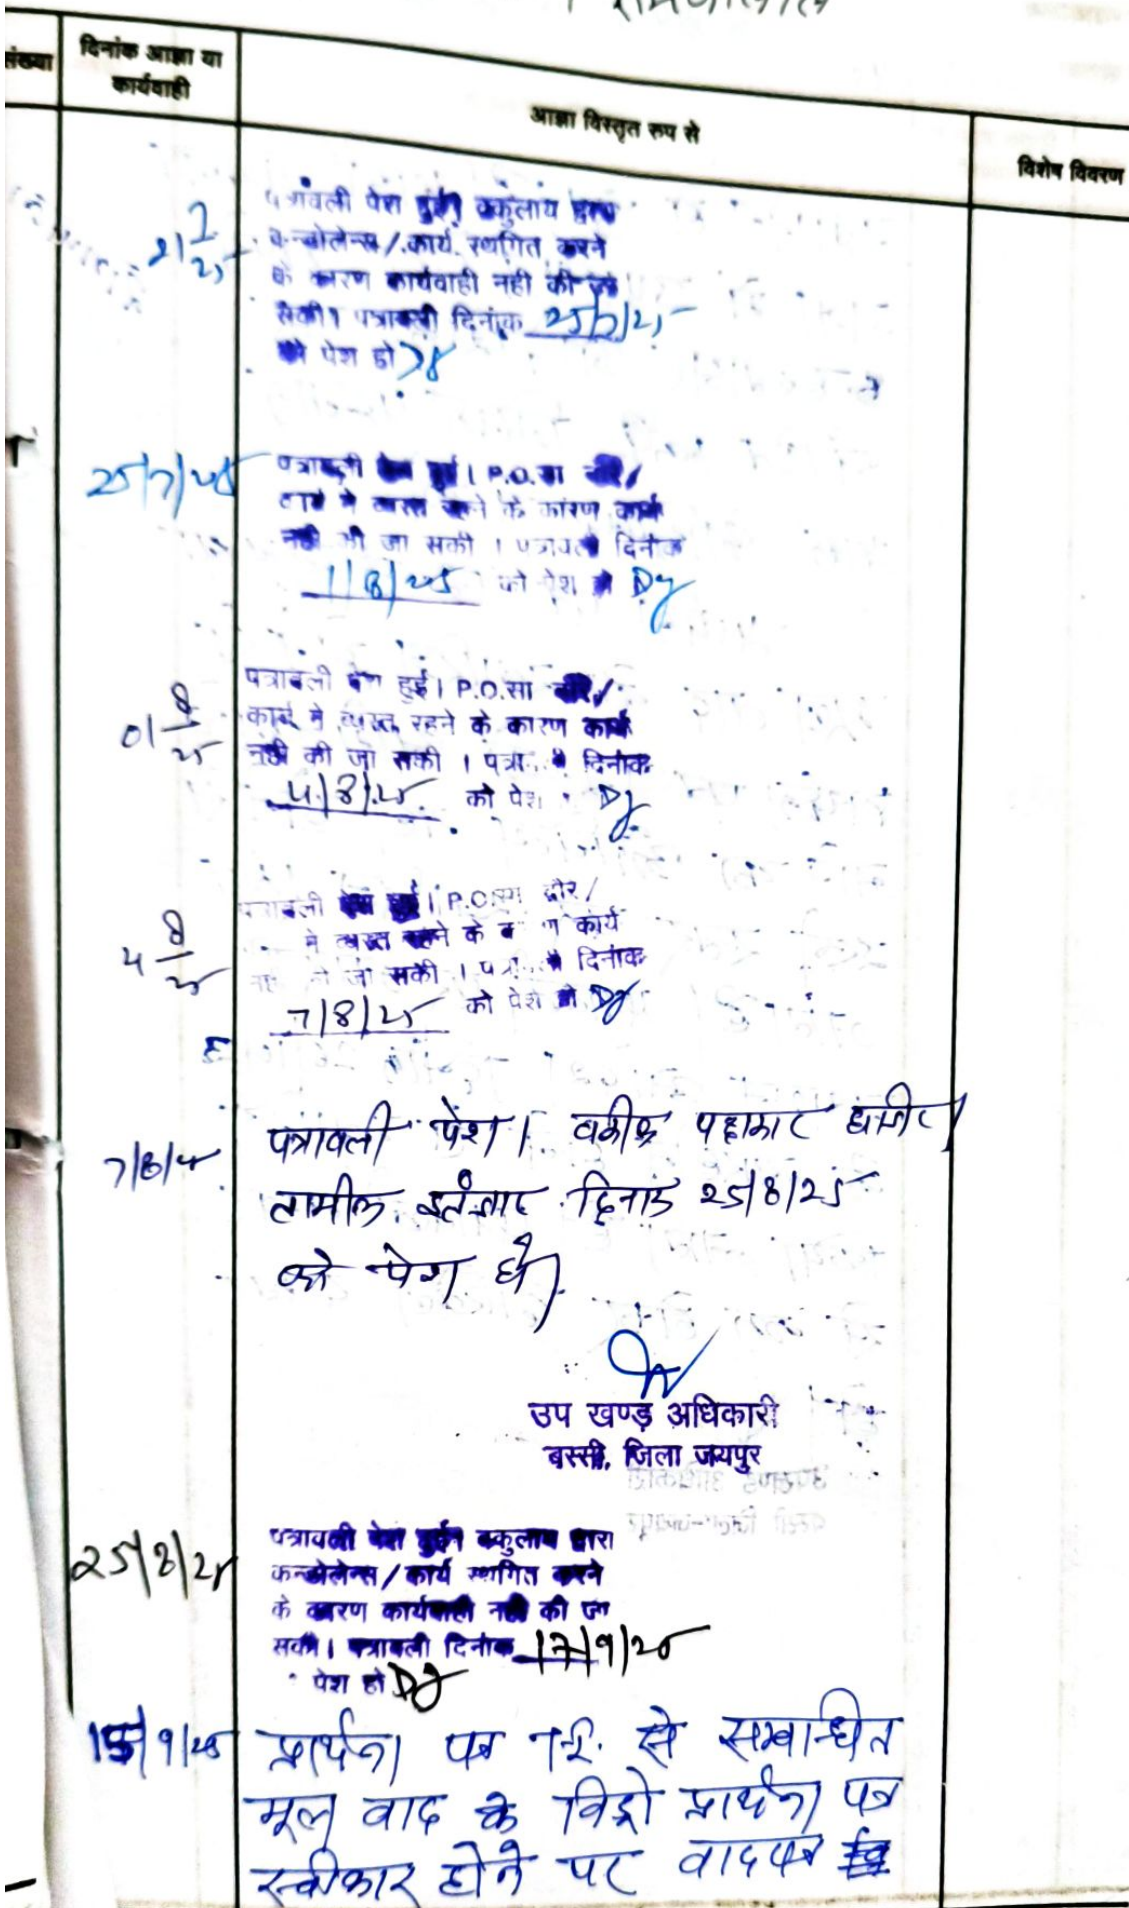 संख्या
दिनांक आज्ञा या
कार्यवाही
आज्ञा विस्तृत रूप से
विशेष विवरण
2/7/25
पत्रावली पेश हुई। वकुलाय द्वारा
कन्डोलेन्स/कार्य स्थगित करने
के कारण कार्यवाही नही की जा
सकी। पत्रावली दिनांक 25/7/25
को पेश हो
25/7/25
पत्रावली पेश हुई। P.O.सा
कार्य मे व्यस्त रहने के कारण कार्य
नही की जा सकी । पत्रावली दिनांक
1/8/25 को पेश हो
01/8/25
पत्रावली पेश हुई। P.O.सा
कार्य मे व्यस्त रहने के कारण कार्य
नही की जा सकी । दिनांक
4/8/25 को पेश
4/8/25
पत्रावली पेश हुई। P.O.सा दौर/
मे व्यस्त रहने के कार्य
जा सकी । दिनांक
7/8/25 को पेश हो
7/8/25
पत्रावली पेश। वकील पक्षकार हाजीर।
तामील इंतजार दिनांक 25/8/25
को पेश हो।
उप खण्ड अधिकारी
बस्सी, जिला जयपुर
25/8/25
पत्रावली पेश हुई। वकुलाय द्वारा
कन्डोलेन्स/कार्य स्थगित करने
के कारण कार्यवाही नही की जा
सकी। पत्रावली दिनांक 17/9/25
पेश हो
15/9/25
प्रार्थना पत्र से सम्बन्धित
मूल वाद के विड्रो प्रार्थना पत्र
स्वीकार होने पर वादपत्र